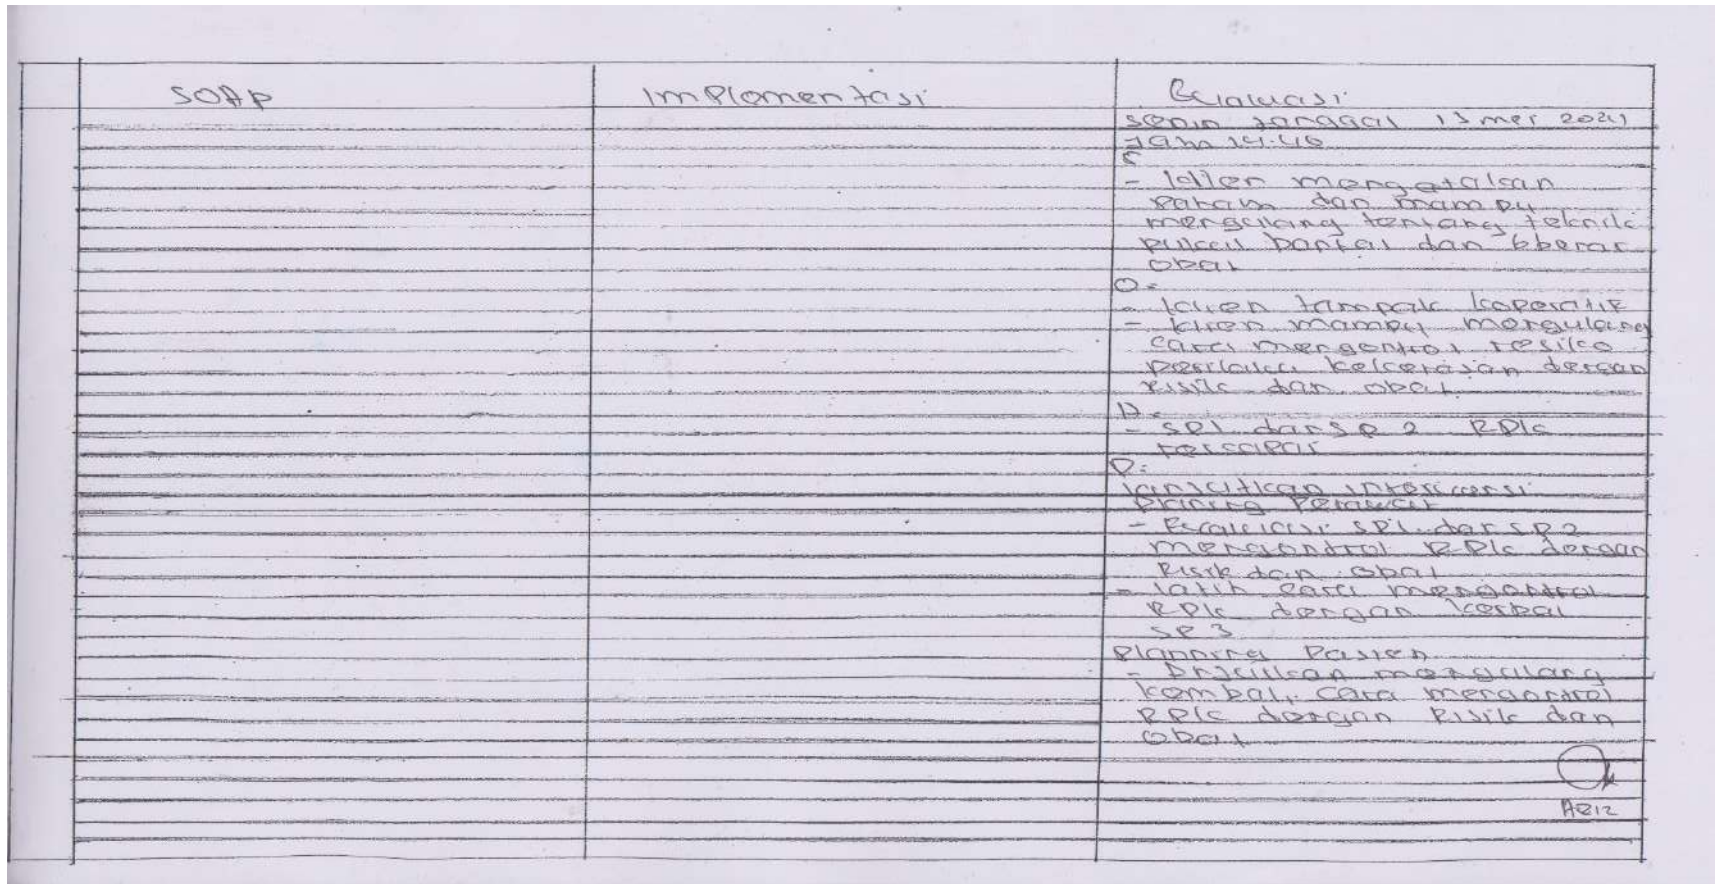 SOAP
Implementasi
Evaluasi
senin tanggal 13 mei 2024
Jam 14.40
S
- klien mengatakan
paham dan mampu
mengulang tentang teknik
pukul bantal dan obat
O:
- klien tampak koperatif
- klien mampu mengulang
cara mengontrol resiko
perilaku kekerasan dengan
fisik dan obat
- SP1 dan SP 2 RPK
tercapai
P:
lanjutkan intervensi
planing perawat
- Evaluasi SP1 dan SP 2
mengontrol RPK dengan
fisik dan obat
- latih cara mengontrol
RPK dengan verbal
SP 3
Planning Pasien
- Anjurkan mengulang
kembali cara mengontrol
RPK dengan fisik dan
obat